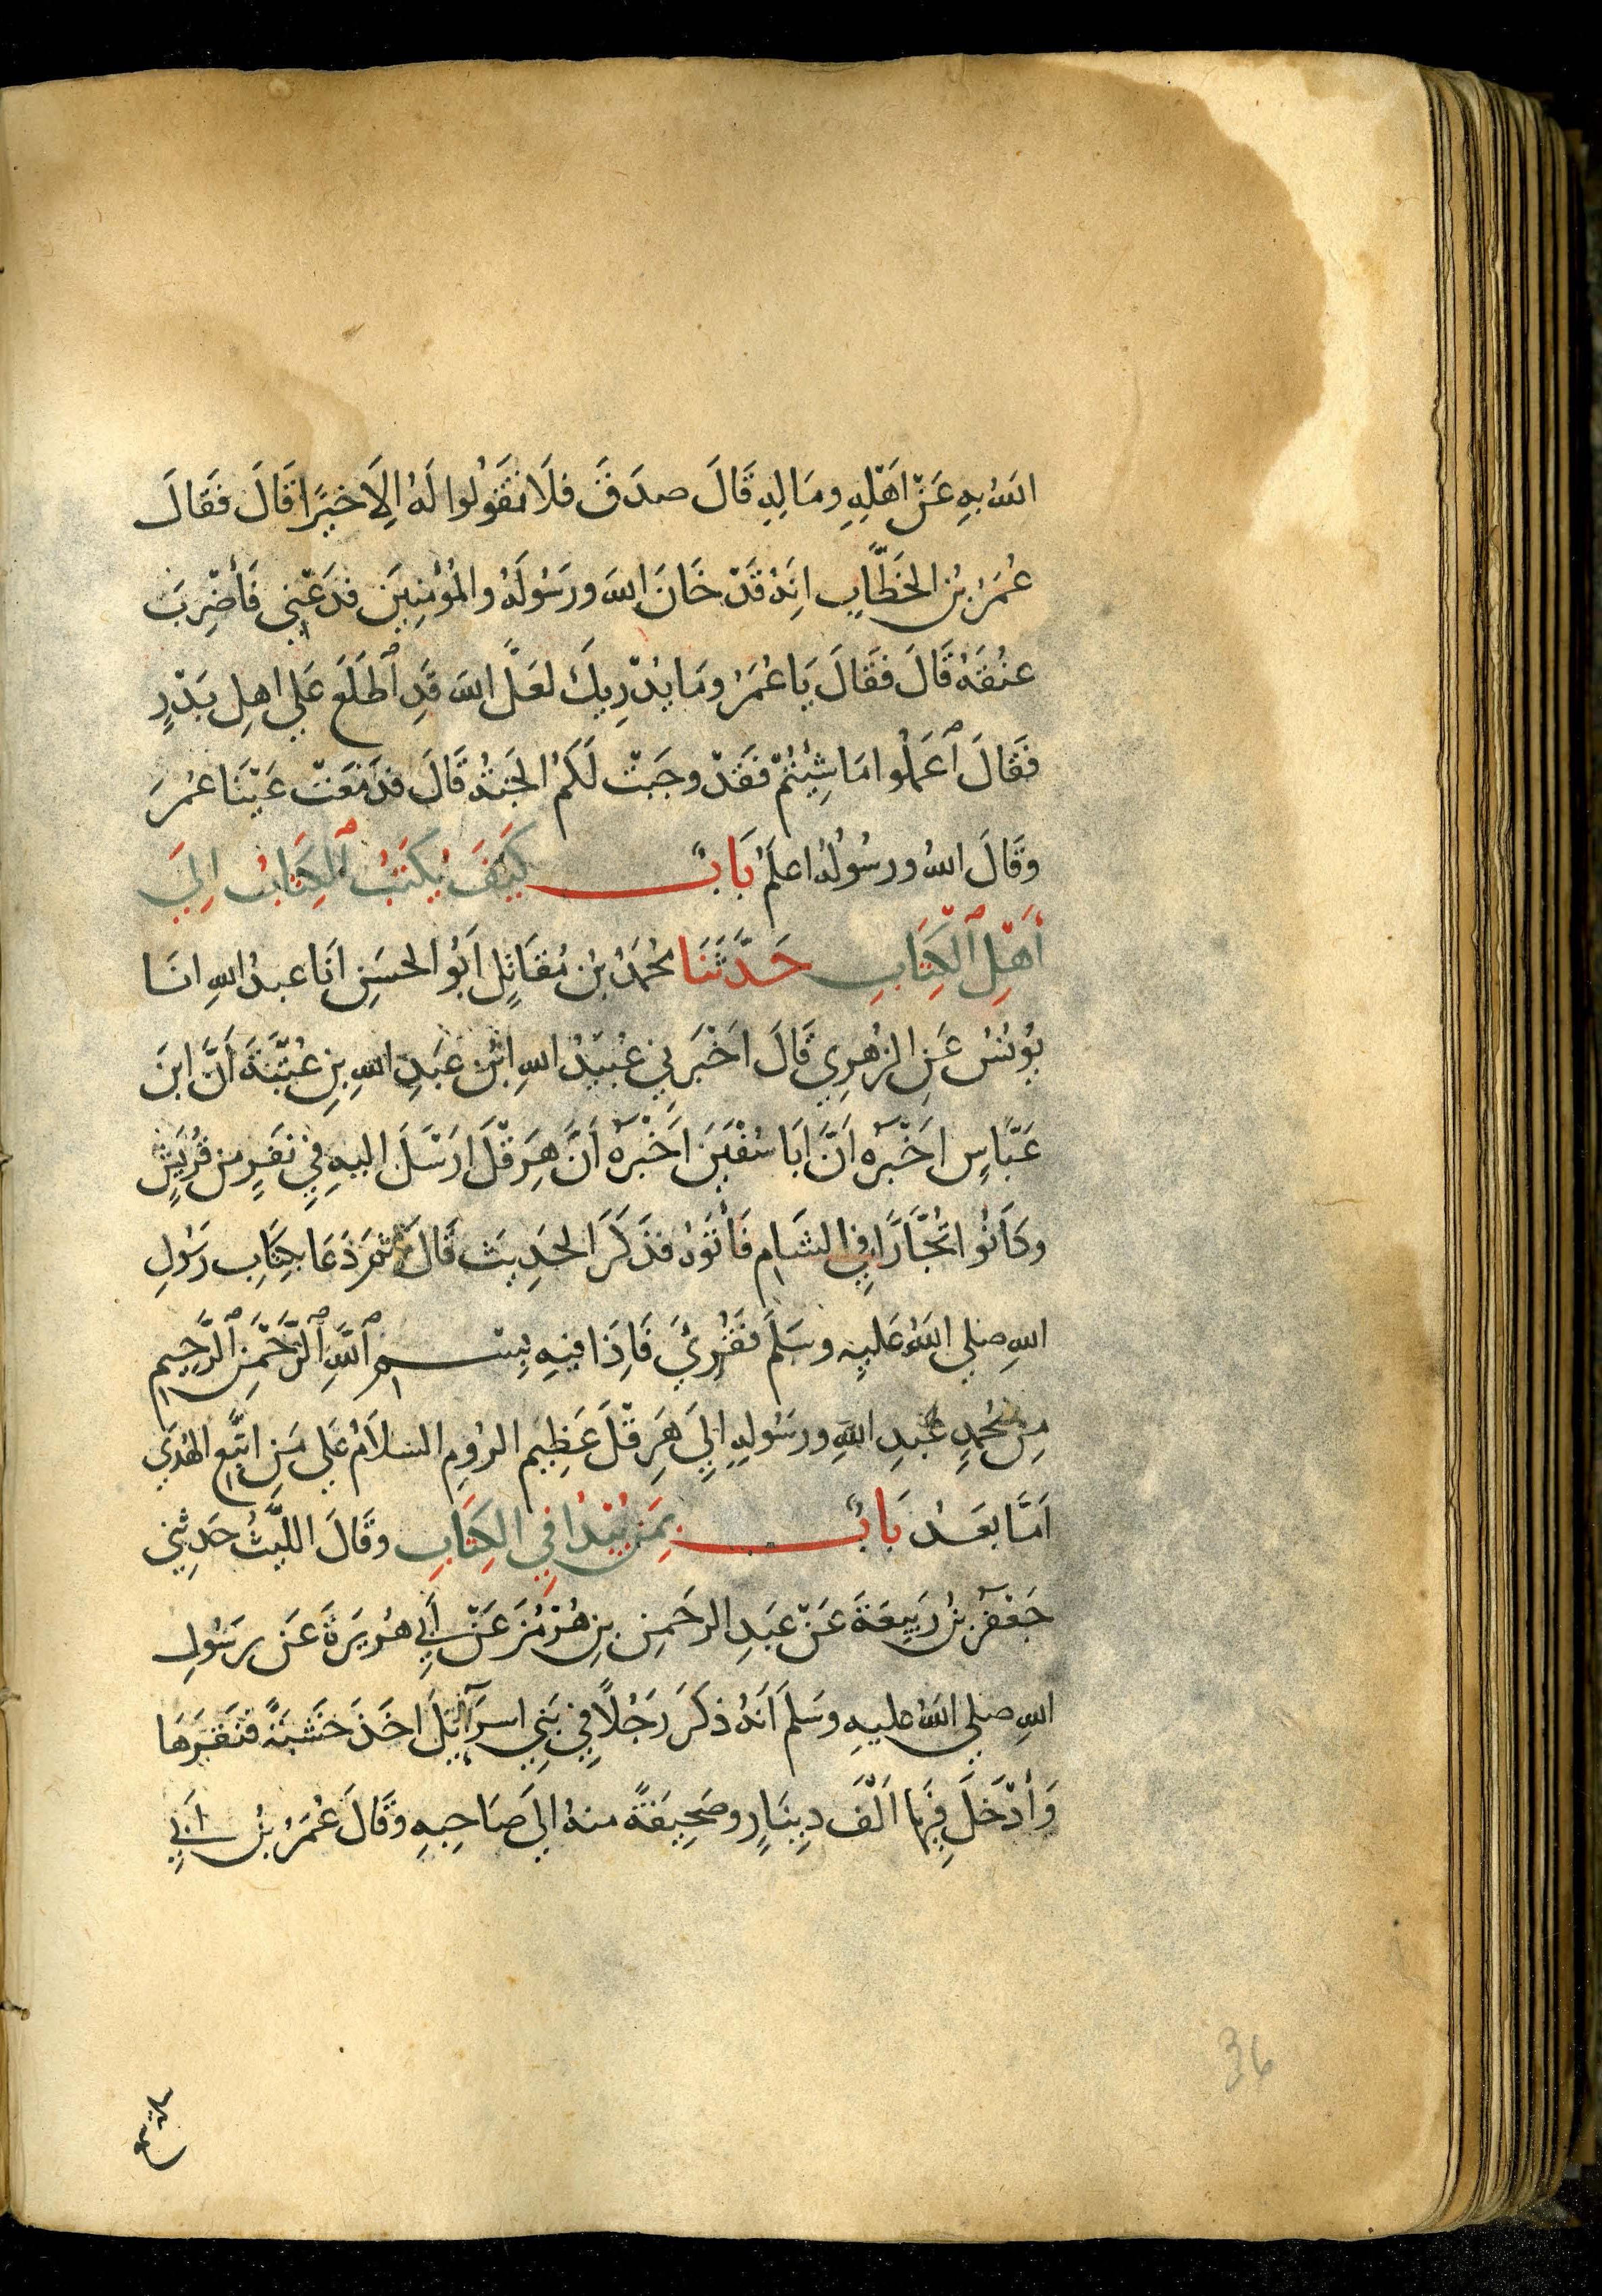 اللهُ بِهِ عَنْ اَهْلِهِ ومَالِهِ قَالَ صدَقَ فلَا تَقُولُوا لَهُ اِلَا خيرًا قَالَ فَقَالَ
عُمَرُ بْنُ الخَطَّابِ انَهُ قَدْ خَانَ اللهَ ورَسُولَهُ والمُؤْمِنِينَ فدَعْنِي فَأَضْرِبَ
عنُقَهُ قَالَ فَقَالَ يَا عُمَرُ ومَا يُدْرِيكَ لعَلَّ اللهَ قَدِ ٱطَلَعَ عَلي اهلِ بَدْرٍ
فَقَالَ ٱعْمَلُوا مَا شِئْتُمْ فَقَدْ وجَبَتْ لَكُمُ الجَنةُ قَالَ فدَمَعَتْ عَيْنَا عُمَرَ
وقَالَ اللهُ ورسُولُهُ اعلَمُ بَابٌ كَيْفَ يُكتَبُ ٱلكِتَابُ اِلَي
أَهْلِ ٱلْكِتَابِ حَدَّثَنَا مُحمَدُ بْنُ مُقَاتِلٍ اَبُو الحسَنِ انَا عبدُ اللهِ انَا
يُونُسُ عَنِ الزهرِي قَالَ اخْبَرَنِي عُبَيْدُ اللهِ ابْنُ عَبدِ اللهِ بنِ عُتْبَةَ أَنَّ ابنَ
عَبَّاسٍ اَخْبَرَهُ اَنَّ اَبَا سُفْيَنَ اَخْبَرَهُ اَنَّ هِرَقْلَ ارْسَلَ اليهِ فِي نَفَرٍ من قُرَيْشٍ
وكَانُوا تُجَّارًا فِي الشَامِ فَأَتَوْهُ فذَكَرَ الحَدِيثَ قَالَ ثمَ دَعَا بِكِتَابِ رَسُولِ
اللهِ صلي اللهُ عَليهِ وسَلمَ فَقُرِئَ فَاِذَا فيهِ بِسْمِ ٱللَّهِ ٱلرَّحْمَنِ ٱلرَّحِيمِ
مِنْ مُحمدٍ عَبدِ اللهِ ورسُولِهِ اِلَي هِرَقْلَ عَظِيمِ الرُومِ السلاَمُ عَلي مَنِ اتَّبَعَ الهُدَي
اَمَّا بعَدُ بَابٌ بِمَنْ يُبْدَا فِي الكِتَابِ وقَالَ الليْثُ حَدثنِي
جَعْفَرُ بْنُ رَبِيعَةَ عَنْ عَبدِ الرحَمنِ بنِ هُرْمُزَ عَنْ أَبِي هُريَرةَ عَن رسُولِ
اللهِ صلي اللهُ عليهِ وسَلمَ اَنهُ ذكَرَ رَجُلاً فِي بَنِي اسرَآئِلَ اخَذَ خشَبَةً فنَقَرَهَا
وَأَدْخَلَ فِيهَا اَلْفَ دِينَارٍ وصَحِيفَةً منهُ الَي صَاحِبِهِ وقَالَ عُمَرُ بْنُ اَبِي
36